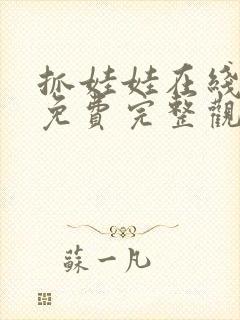 抓娃娃在綫
免費完整觀
蘇一凡